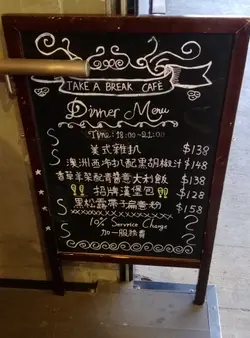 TAKE A BREAK CAFE
Dinner Menu
Time: 18:00-21:00
美式雞扒 $138
澳洲西冷扒配黑胡椒汁 $148
香草羊架配青醬意大利飯 $138
招牌漢堡包 $128
黑松露帶子扁意粉 $158
10% Service Charge
加一服務費